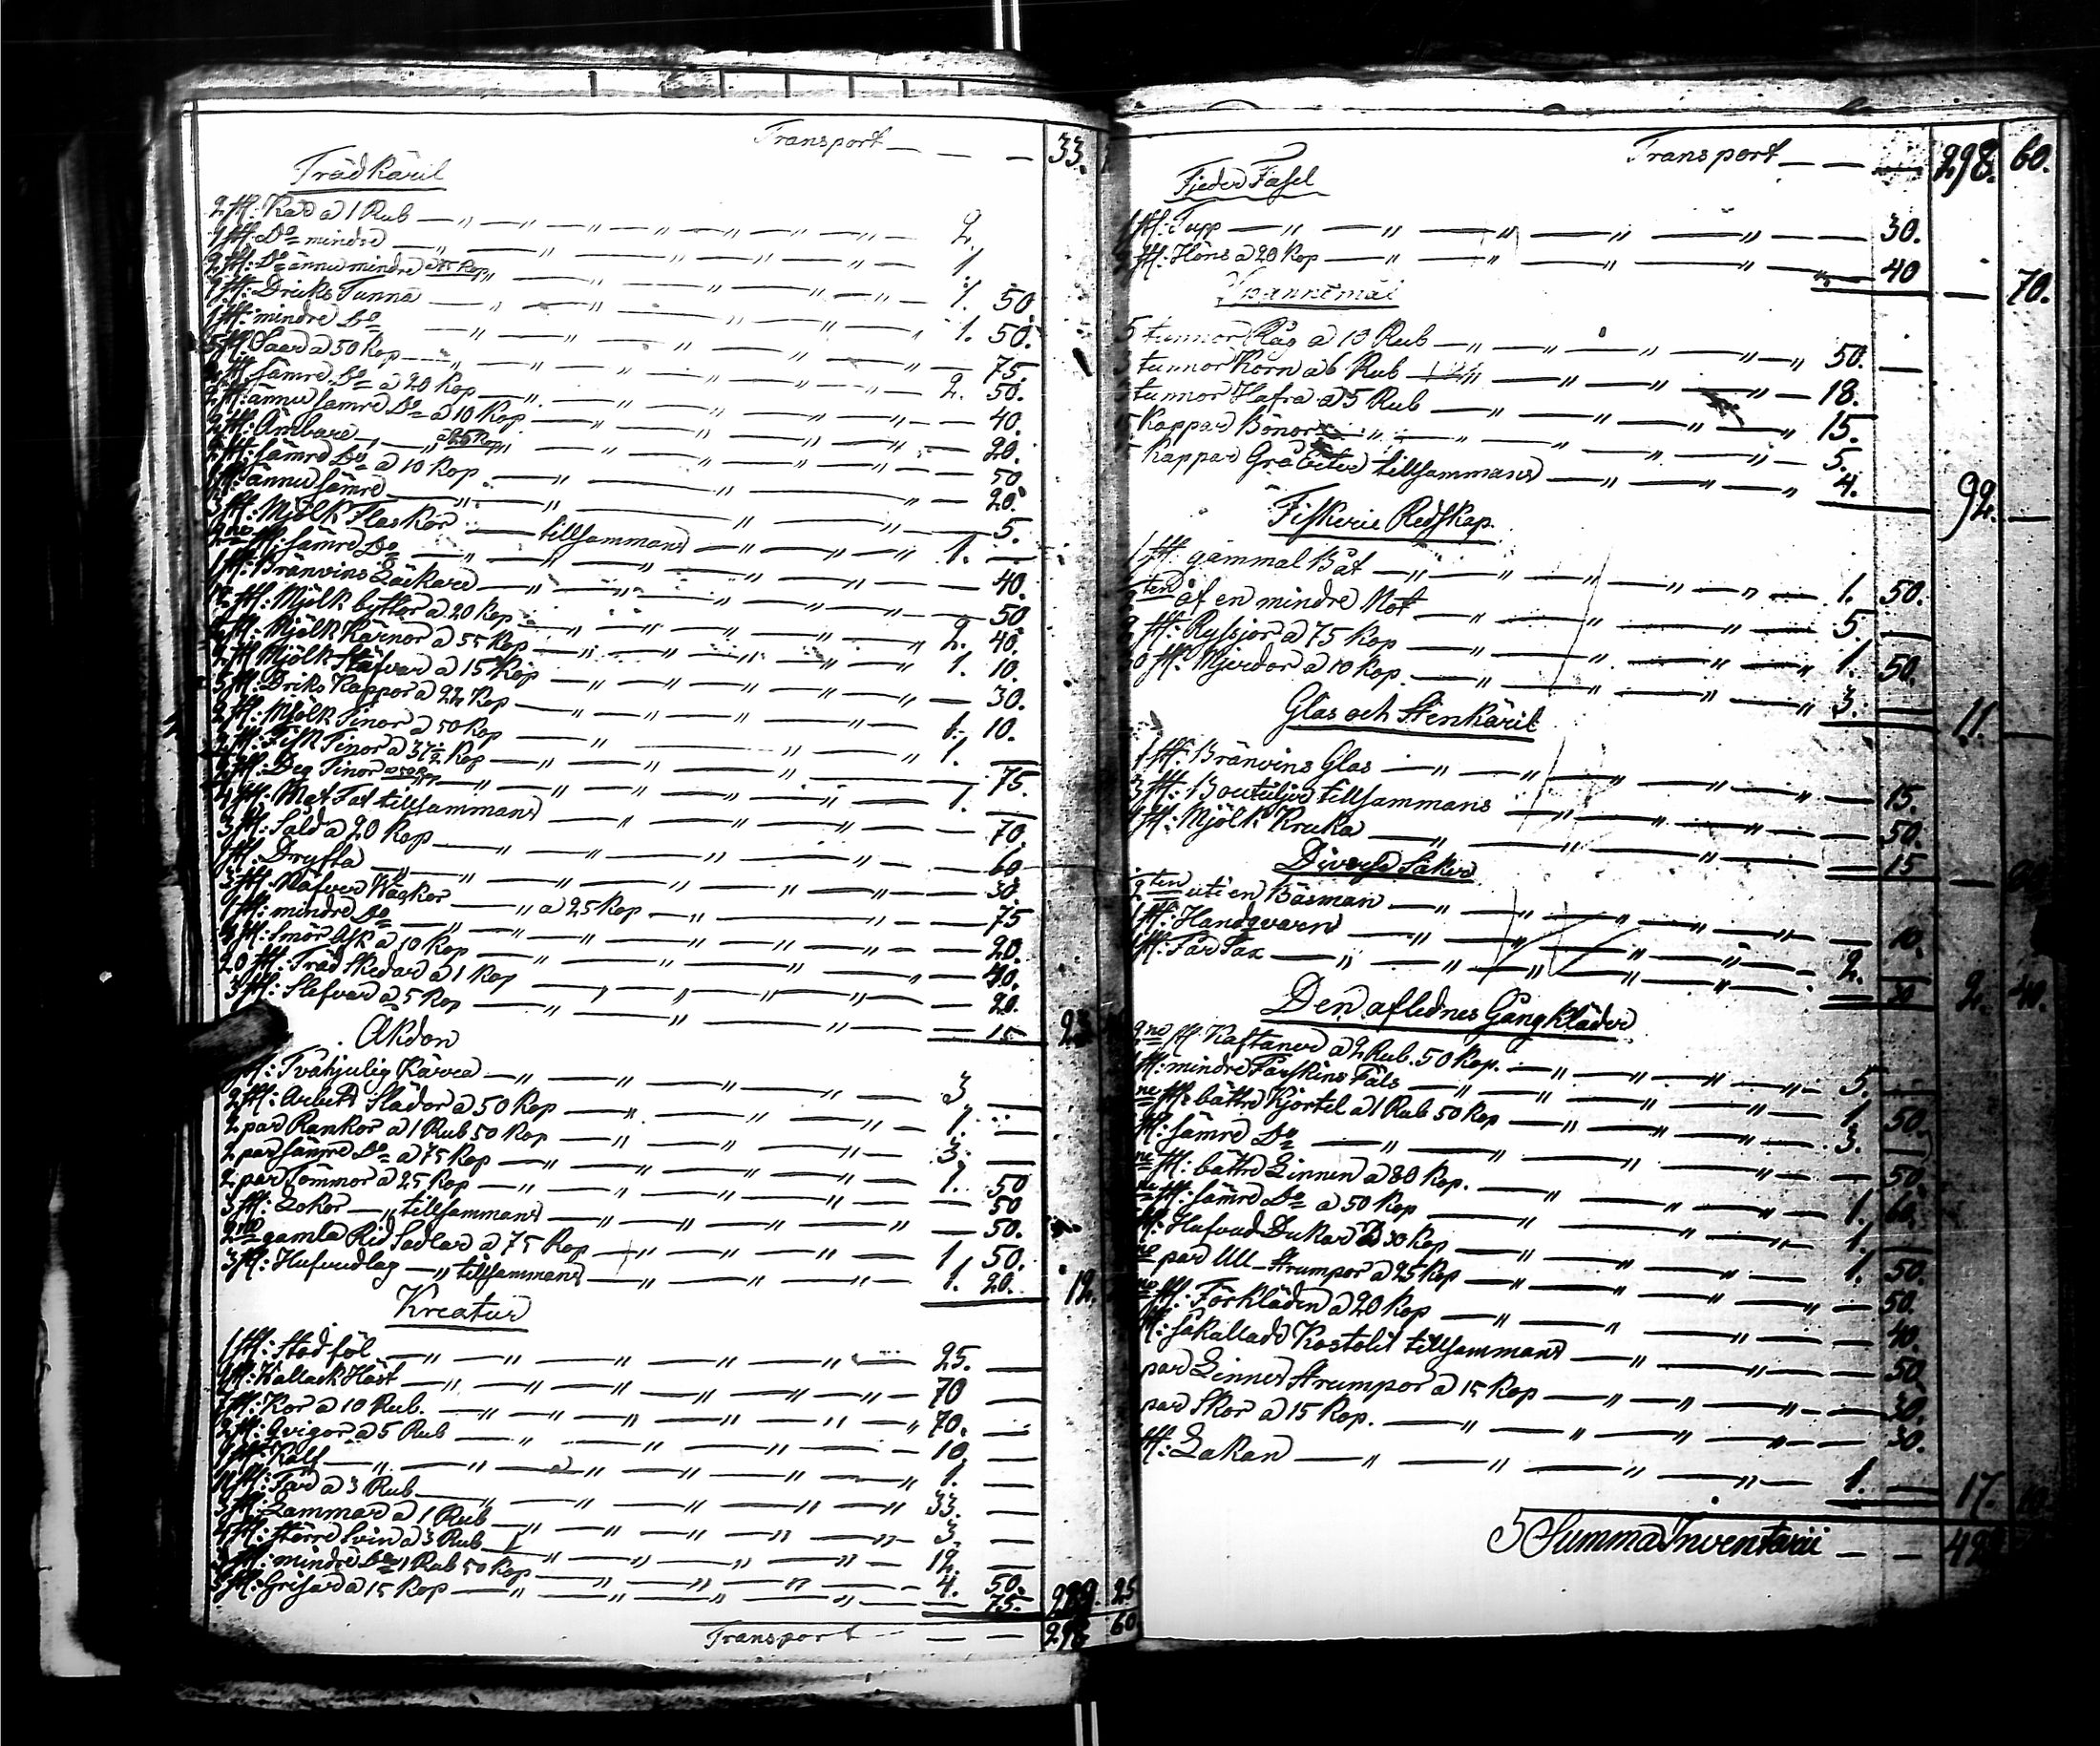 Transport — — — 33.
Trädkäril
2 st: Kar a 1 Rub — 2.
1 st: Do mindre — 1
2 st: Do ännu mindre a 75 Kop — 1. 50.
1 st: Dricks Tunna — 1. 50.
1 st: mindre Do — 75.
5 st: Såar a 50 Kop — 2. 50.
2 st: sämre Do a 20 Kop — 40.
2 st: ännu sämre Do a 10 Kop — 20.
2 st: Ämbare a 25 Kop — 50
2 st: sämre Do a 10 Kop — 20.
1 st: ännu sämre — 5.
3 st: Mjölk Flaskor — tillsammans — 1. —
2ne st: sämre Do — 40.
1 st: Bränvins Läckare — 50
12 st: Mjölk byttor a 20 Kop — 2. 40.
2 st: Mjölk Kärnor a 55 Kop — 1. 10.
2 st: Mjölk Stäfvar a 15 Kop — 30.
5 st: Driks Kappor a 22 Kop — 1. 10.
2 st: Mjölk Tinor a 50 Kop — 1. —
2 st: Fisk Tinor a 37½ Kop — 75.
2 st: Deg Tinor a 50 Kop — 1. —
4 st: Mat Fat tillsammans — 70.
3 st: Såld a 20 Kop — 60
1 st: Dryfta — 30.
3 st: Näfver Wackor a 25 Kop — 75
1 st: mindre Do — 20.
4 st: Smör Ask a 10 Kop — 40.
20 st: Träd Skedar a 1 Kop — 20.
3 st: Slefvar a 5 Kop — 15 23
Åkdon
1 st: Tvåhjulig Kärra — 3. —
2 st: Arbets Slädor a 50 Kop — 1. —
2 par Rankor a 1 Rub 50 Kop — 3. —
2 par sämre Do a 75 Kop — 1. 50
2 par Tömmor a 25 Kop — 50
3 st: Lokor — tillsammans — 50.
2ne gamla Rid Sadlar a 75 Kop — 1 50.
3 st: Hufvudlag — tillsammans — 1. 20. 12.
Kreatur
1 st: Stod föl — 25. —
1 st: Wallack Häst — 70 —
7 st: Kor a 10 Rub. — 70. —
2 st: Qvigor a 5 Rub — 10 —
1 st: Kalf — 1. —
11 st: Får a 3 Rub — 33. —
3 st: Lammar a 1 Rub — 3. —
4 st: större Svin a 3 Rub — 12. —
3 st: mindre Do a 1 Rub 50 Kop — 4. 50.
5 st: Grisar a 15 Kop — 75. 229. 25
Transport — — 298 60
Transport — — — 298. 60.
Fjeder Fäsel
1 st: Tupp — 30.
2 st: Höns a 20 Kop — 40 — 70.
Spannemål
5 tunnor Råg a 10 Rub — 50. —
3 tunnor Korn a 6 Rub — 18.
3 tunnor Hafra a 5 Rub — 15.
Kappar Bönor — 5.
Kappar Grå Ärter tillsammans — 4. 92. —
Fiskerie Redskap.
1 st: gammal Båt — 1. 50.
½ten af en mindre Not — 5. —
2 st: Ryssjor a 75 Kop — 1. 50.
30 st: Mjerdor a 10 Kop. — 3. — 11. —
Glas och Stenkäril
1 st: Bränvins Glas — 15.
3 st: Bouteljer tillsammans — 50.
1 st: Mjölk Kruka — 15 —
Diverse Saker
½ten uti en Bäsman — 10.
1 st: Handqvarn — 2. —
1 st: Får Sax — 30 2. 40.
Den aflednes Gångkläder
2ne st Kaftaner a 2 Rub. 50 Kop. — 5. —
1 st: mindre Fårskins Fäls — 1. 50.
ne st: bättre Kjortel a 1 Rub 50 Kop — 3. —
st: sämre Do — 50.
ne st: bättre Linnen a 80 Kop. — 1. 60.
ne st: sämre Do a 50 Kop — 1. —
st: Hufvud Dukar a 30 Kop — 1. 50.
ne par Ull Strumpor a 25 Kop — 50.
ne st: Förkläden a 20 Kop — 40.
st: såkallade Kostolit tillsammans — 50
par Linnes Strumpor a 15 Kop — 30.
par Skor a 15 Kop. — 30.
st: Lakan — 1. — 17. 10.
Summa Inventarii — —